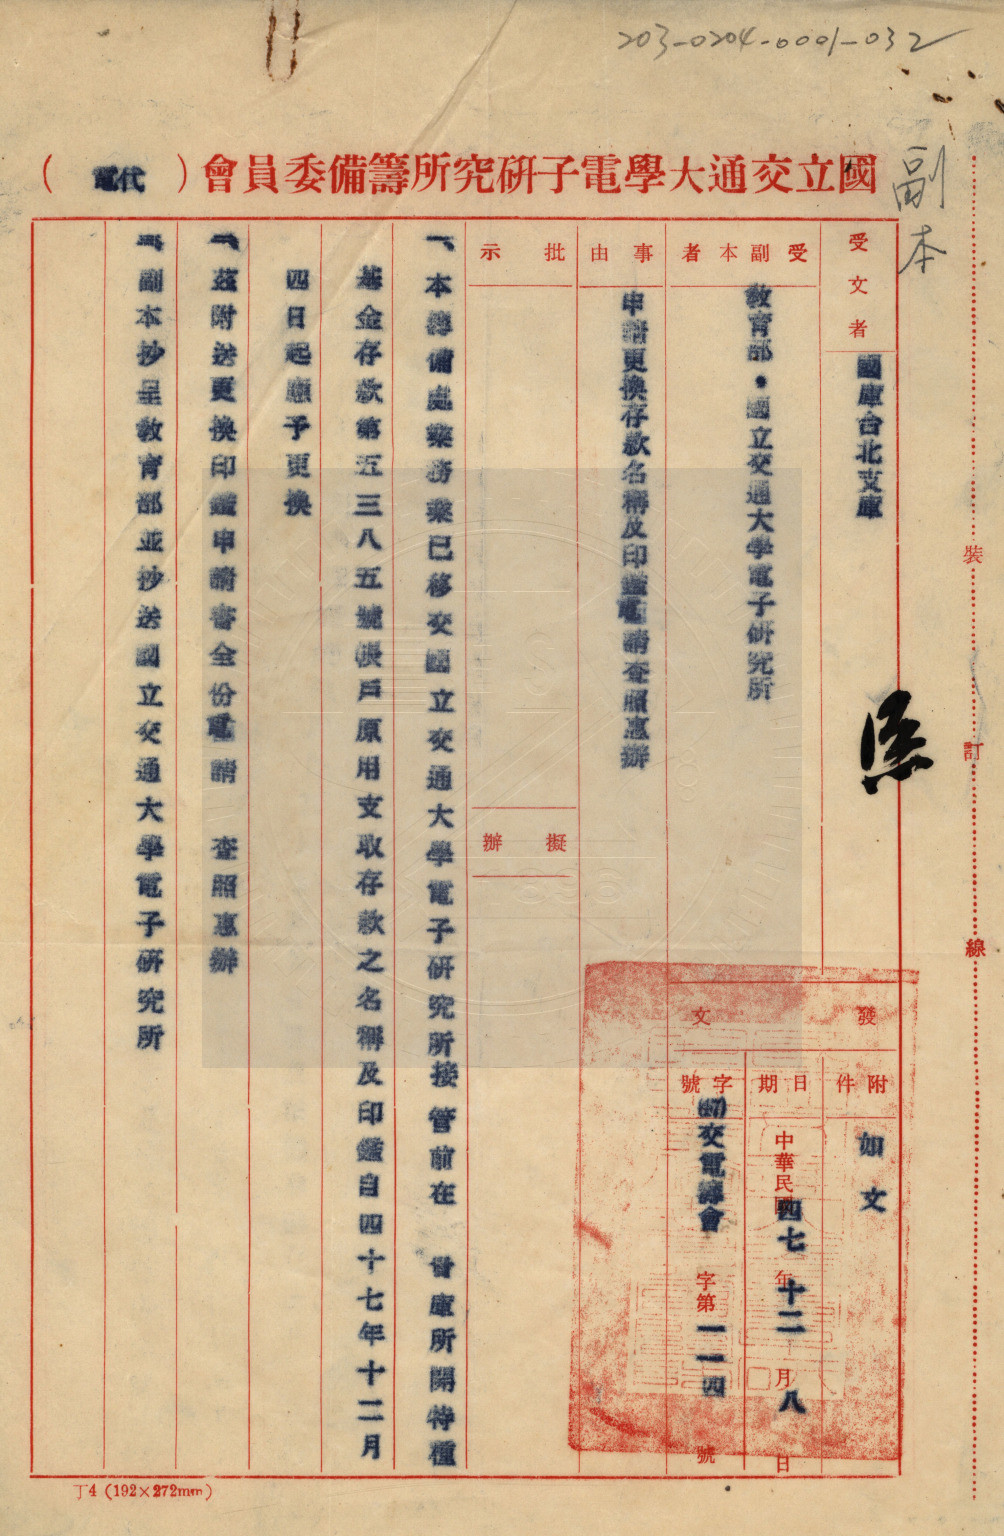 203-0204-0001-032
副本
國立交通大學電子研究所籌備委員會(代電)
受文者
國庫台北支庫
受副本者
教育部・國立交通大學電子研究所
事由
申請更換存款名稱及印鑑電請查照惠辦
批示
擬辦
發文
附件
如文
日期
中華民國四七年十二月八日
字號
(47)交電籌會字第一一四號
一、本籌備處業務業已移交國立交通大學電子研究所接管前在 貴庫所開特種
基金存款第五三八五號帳戶原用支取存款之名稱及印鑑自四十七年十二月
四日起應予更換
二、茲附送更換印鑑申請書全份電請 查照惠辦
三、副本抄呈教育部並抄送國立交通大學電子研究所
裝
訂
線
丁4 (192×272mm)